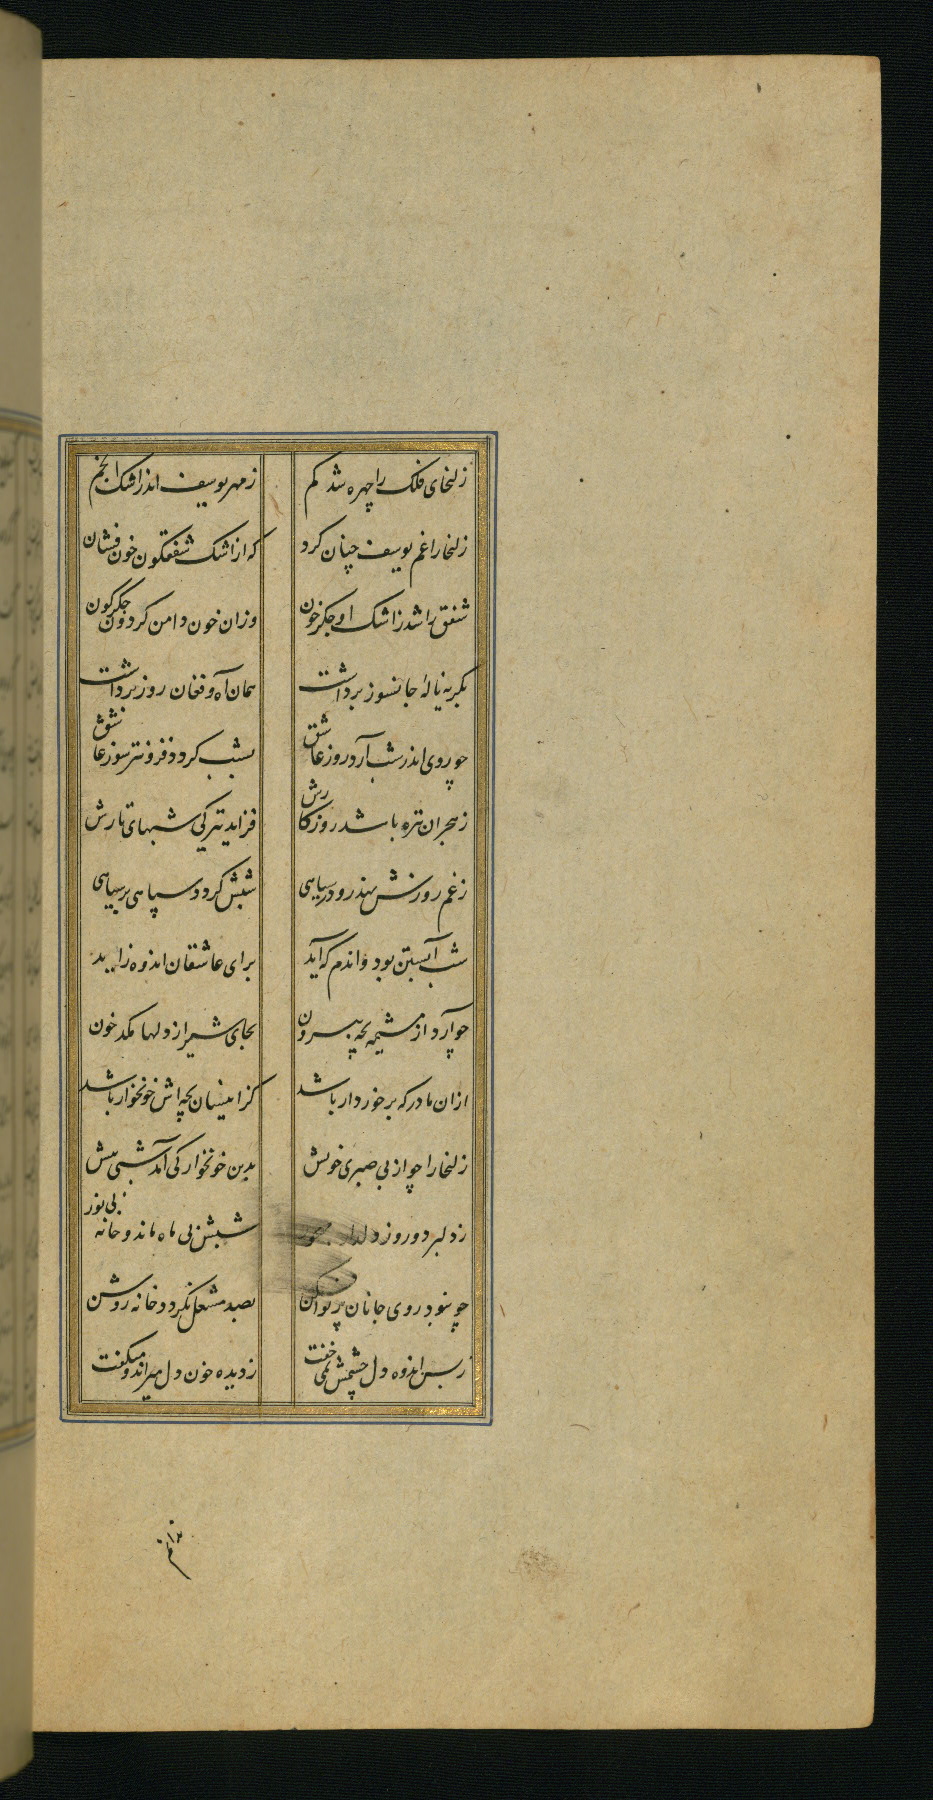 زلیخای فلک را چهره شد کم ز مهر یوسف اندر اشک انجم
زلیخا را غم یوسف چنان کرد که از اشک شفقگون خون فشان
شفق را شد ز اشک او جگر خون وزان خون دامن گردون جگرگون
بگریه نالهٔ جانسوز برداشت همان آه و فغان روز برداشت
چو روی اندر شب آرد روز عاشق بشب گردد فزونتر سوز عاشق
ز هجران تیره باشد روزگارش فزاید تیرگی شبهای تارش
ز غم روزش نهد رو در سیاهی شبش گردد سیاهی بر سیاهی
شب آبستن بود واندم که آید برای عاشقان اندوه زاید
چو آرد از مشیمه بچه بیرون بجای شیر از دلها مکد خون
ازان مادر که برخوردار باشد کز اینسان بچه‌اش خونخوار باشد
زلیخا را چو از بی صبری خویش بدین خونخوارگی آمد شبی پیش
ز دلبر دور و ز دلدار شبش بی ماه ماند و خانه بی نور
چو نبود روی جانان پرتوافکن بصد مشعل نگردد خانه روشن
ز بس اندوه دل چشمش نمی خفت ز دیده خون دل میراند و میگفت